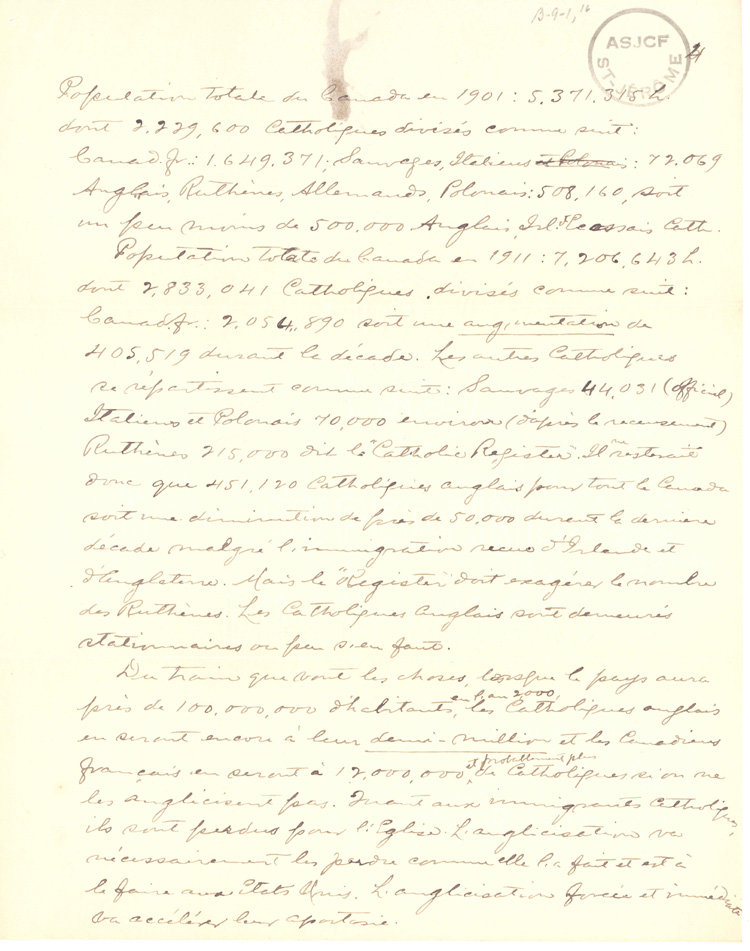 B-9-1, 16
ASJCF
ST-JÉRÔME
4
Population totale du Canada en 1901 : 5.371.315 h.
dont 2.229,600 Catholiques divisés comme suit :
Canad. fr. : 1.649.371, Sauvages, Italiens et Polonais : 72.069
Anglais, Ruthènes, Allemands, Polonais : 508,160, soit
un peu moins de 500.000 Anglais, Irl. Ecossais Cath.
Population totale du Canada en 1911 : 7,206,643 h.
dont 2,833,041 Catholiques divisés comme suit :
Canad. fr. : 2.054,890 soit une augmentation de
405,519 durant la décade. Les autres Catholiques
se répartissent comme suit : Sauvages 44,031 (officiel)
Italiens et Polonais 70,000 environ (d'après le recensement)
Ruthènes 215,000 dit le "Catholic Register". Il ne resterait
donc que 451,120 Catholiques anglais pour tout le Canada
soit une diminution de près de 50,000 durant la dernière
décade malgré l'immigration reçue d'Irlande et
d'Angleterre. Mais le "Register" doit exagérer le nombre
des Ruthènes. Les Catholiques anglais sont demeurés
stationnaires ou peu s'en faut.
Du train que vont les choses, lorsque le pays aura
près de 100,000,000 d'habitants, en l'an 2000, les Catholiques anglais
en seront encore à leur demi-million et les Canadiens
français en seront à 12,000,000 et probablement plus de Catholiques si on ne
les anglicisent pas. Quant aux immigrants catholiques,
ils sont perdus pour l'Eglise. L'anglicisation va
nécessairement les perdre comme elle l'a fait et est à
le faire aux Etats Unis. L'anglicisation forcée et immédiate
va accélérer leur apostasie.